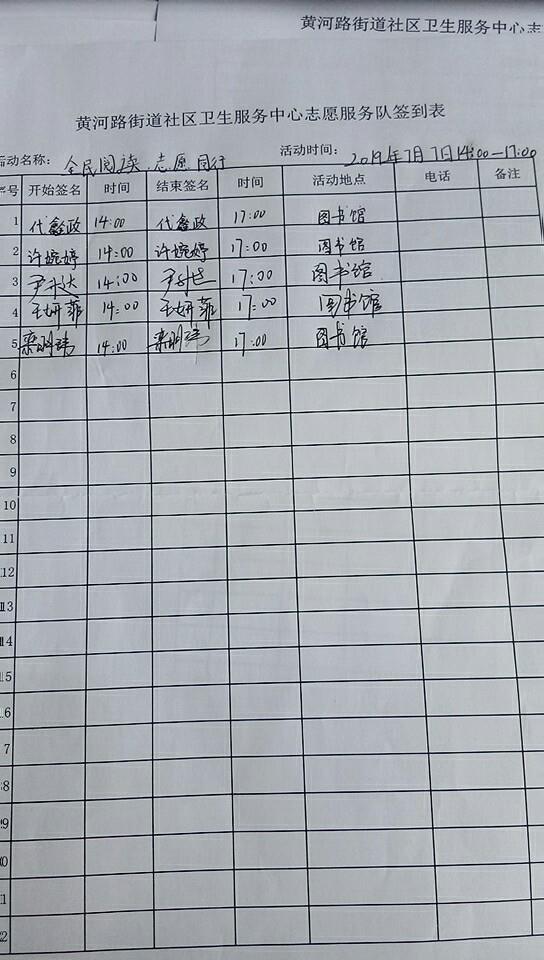 黄河路街道社区卫生服务中心志
黄河路街道社区卫生服务中心志愿服务队签到表
活动名称： 全民阅读、志愿同行 活动时间： 2019年7月7日14:00—17:00
序号 开始签名 时间 结束签名 时间 活动地点 电话 备注
1 代鑫政 14:00 代鑫政 17:00 图书馆
2 许婉婷 14:00 许婉婷 17:00 图书馆
3 14:00 17:00 图书馆
4 王妍菲 14:00 王妍菲 17:00 图书馆
5 栾明玮 14:00 栾明玮 17:00 图书馆
6
7
8
9
10
11
12
13
14
15
6
7
8
9
0
1
2